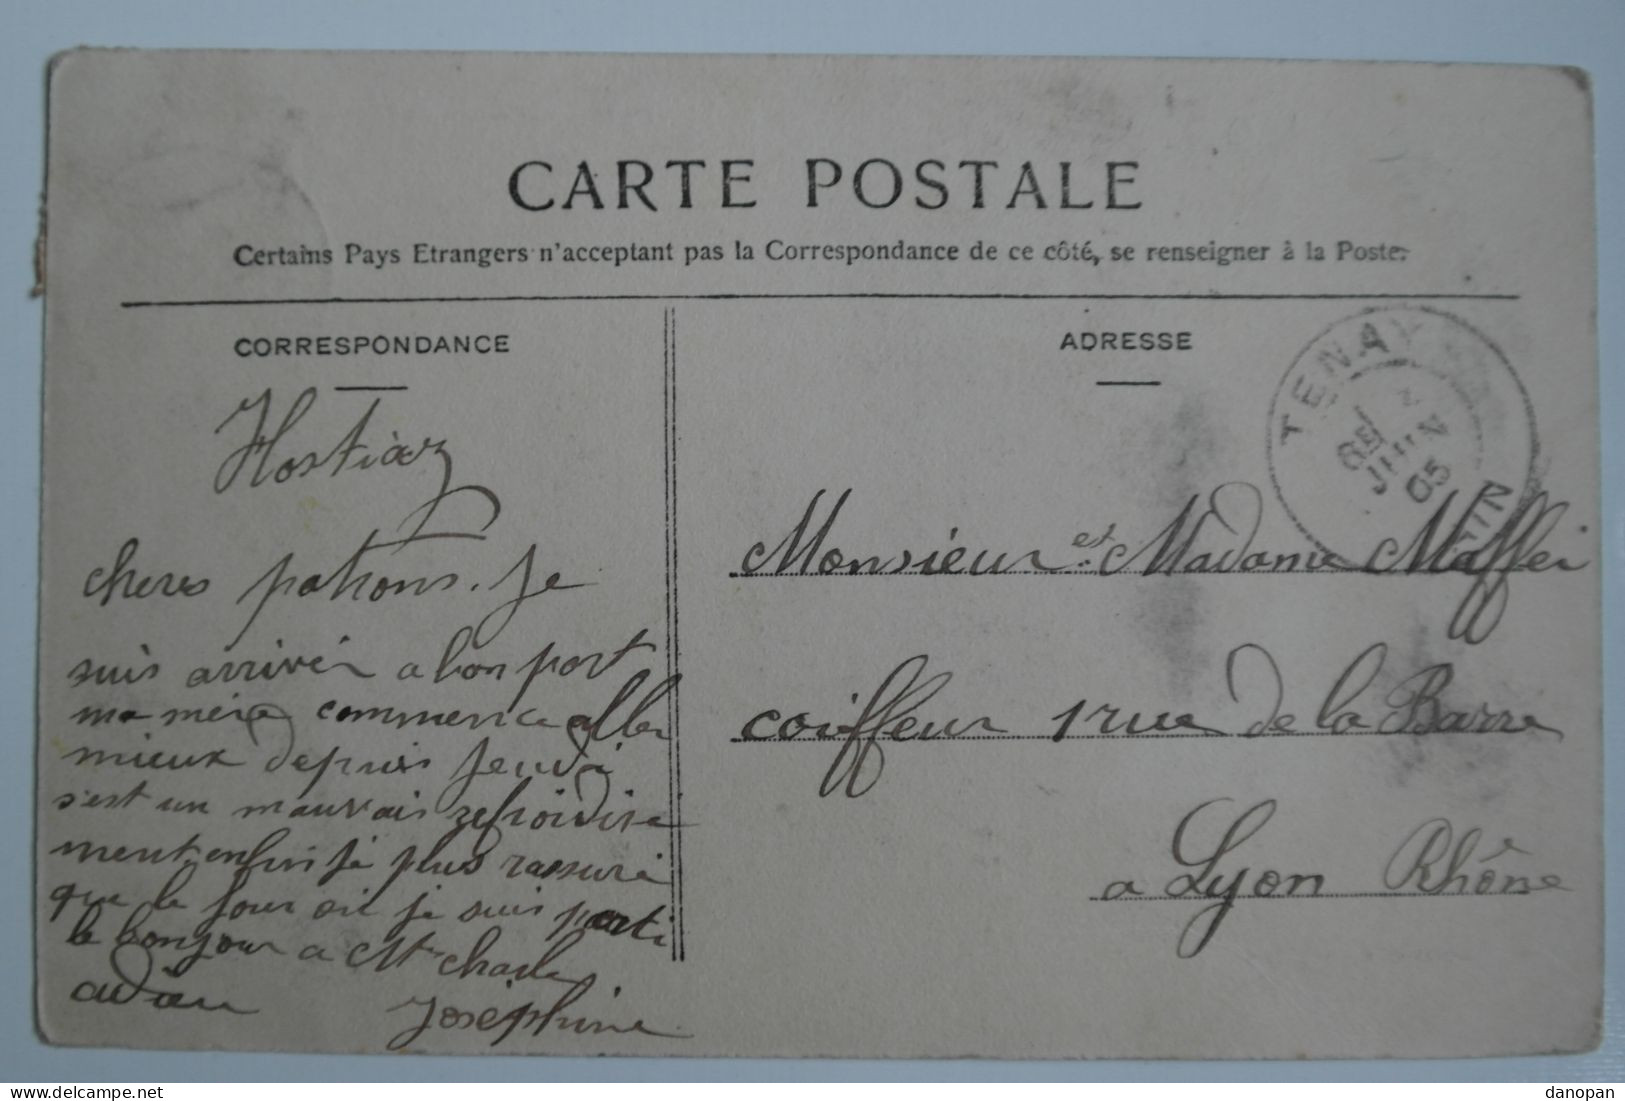 CARTE POSTALE
Certains Pays Etrangers n'acceptant pas la Correspondance de ce côté, se renseigner à la Poste.
CORRESPONDANCE
Hostiaz
cheres patrons. je
suis arrivér a bon port
ma mère commence aller
mieux depuis jeudi
s'est un mauvais refroidise
ment, enfin je plus rassuré
que le jour où je suis parti
le bonjour a Mr charles
adieu Joséphine
ADRESSE
TENAY AIN
JUIN 05
Monsieur et Madame Maffei
coiffeur 1 rue de la Barre
a Lyon Rhône
delcampe.net
danopan